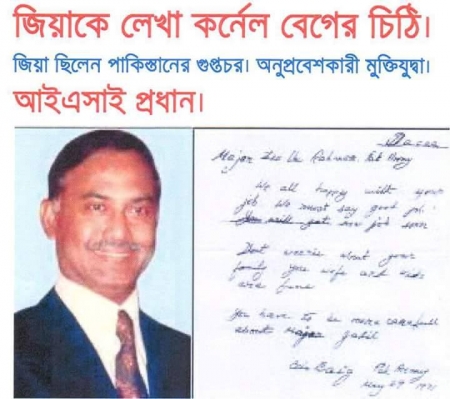 জিয়াকে লেখা কর্নেল বেগের চিঠি।
জিয়া ছিলেন পাকিস্তানের গুপ্তচর। অনুপ্রবেশকারী মুক্তিযুদ্বা।
আইএসাই প্রধান।
Dacca
Major Zia Ur Rahman. Pak Army
We all happy with your
job We must say good job.
You will get new job soon
Dont worrie about your
family you wife and kids
are fine
You have to be more carefull
about Major Jalil
Baig Pak Army
May 29 1971